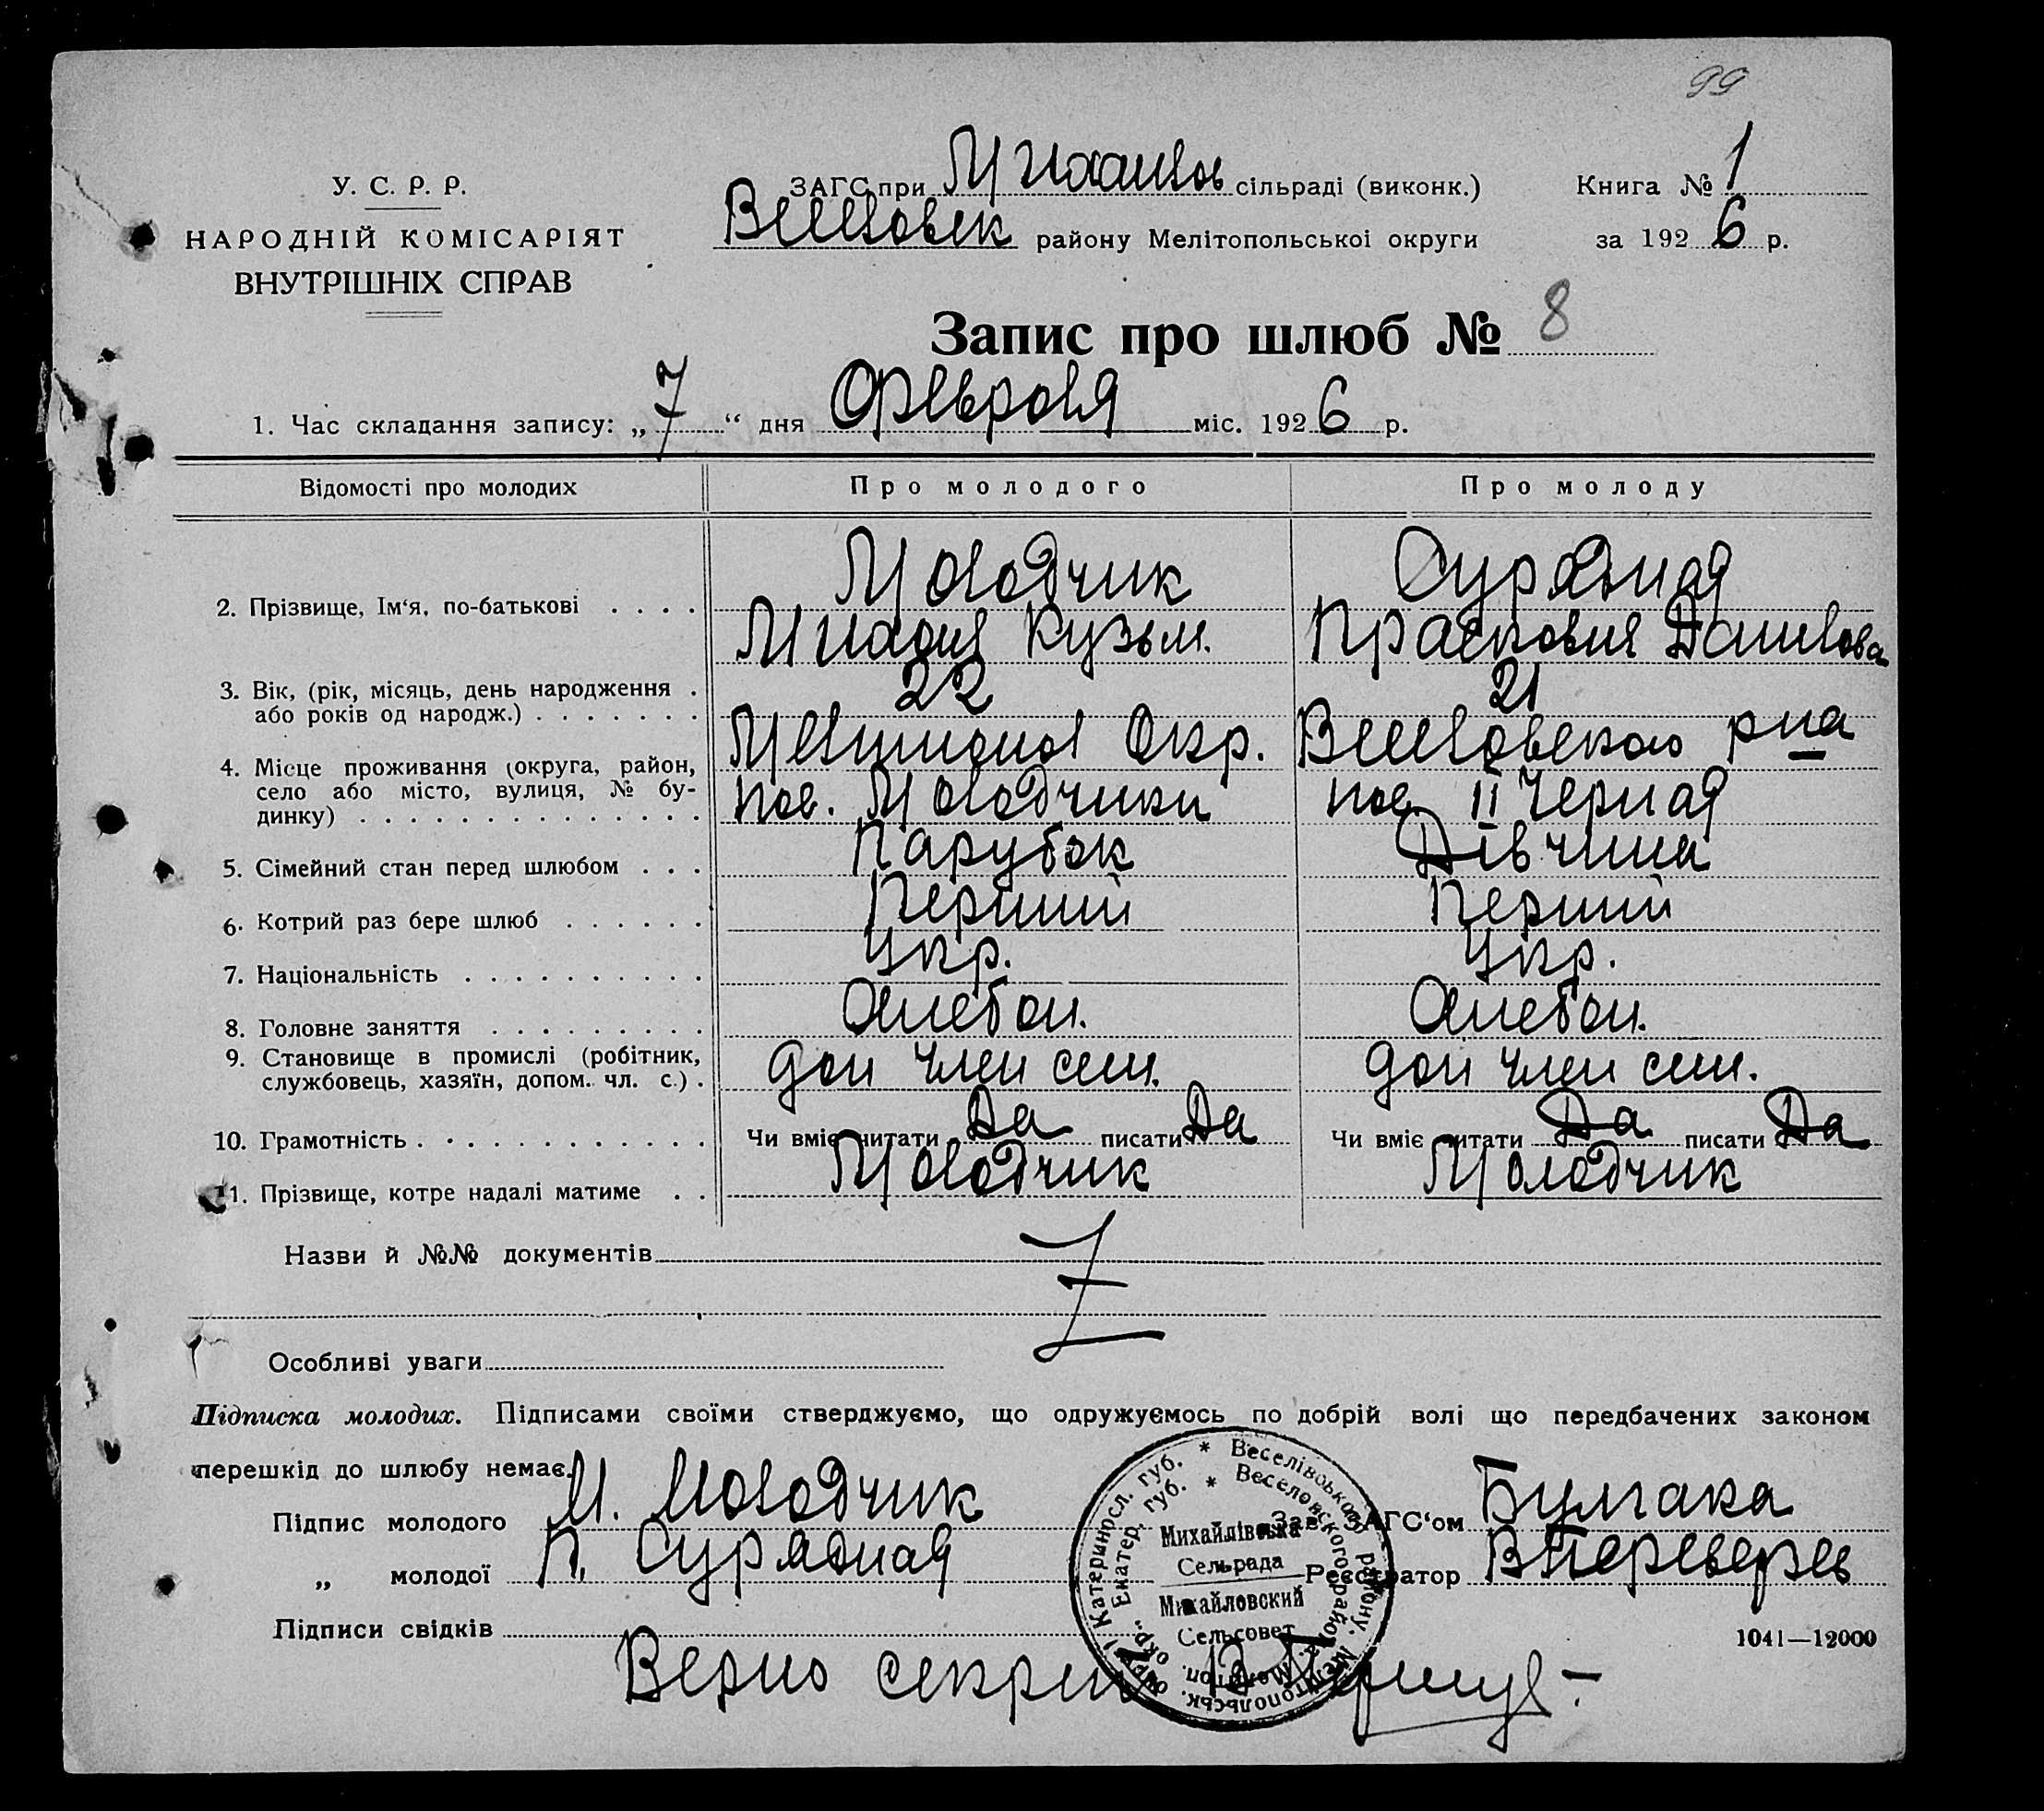 99
У. С. Р. Р.
НАРОДНІЙ КОМІСАРІЯТ
ВНУТРІШНІХ СПРАВ
ЗАГС при Михайлов сільраді (виконк.)
Веселовск району Мелітопольської округи
Книга № 1
за 192 6 р.
Запис про шлюб № 8
1. Час складання запису: „ 7 “ дня Февроля міс. 192 6 р.
Відомості про молодих Про молодого Про молоду
Молодчик Сурядная
2. Прізвище, Ім‘я, по-батькові . . . .
Кузьм. Прасковия Данилова
3. Вік, (рік, місяць, день народження . 22 21
або років од народж.) . . . . . . .
Окр. Веселовского р на
4. Місце проживання (округа, район,
село або місто, вулиця, № бу-
динку) . . . . . . . . . . . . . .
пос. Молодчики пос II Черная
5. Сімейний стан перед шлюбом . . . Парубок Дівчина
6. Котрий раз бере шлюб . . . . . . Перший Перший
7. Національність . . . . . . . . . . Укр. Укр.
8. Головне заняття . . . . . . . . . Хлебоп. Хлебоп.
9. Становище в промислі (робітник,
службовець, хазяїн, допом. чл. с.) . доп член сем. доп член сем.
10. Грамотність . . . . . . . . . . . . Чи вміє читати Да писати Да Чи вміє читати Да писати Да
11. Прізвище, котре надалі матиме . . Молодчик Молодчик
Назви й №№ документів
Особливі уваги
Підписка молодих. Підписами своїми стверджуємо, що одружуємось по добрій волі що передбачених законом
перешкід до шлюбу немає.
Підпис молодого М. Молодчик Зав. ЗАГС‘ом Булгака
„ молодої П. Сурядная Реєстратор
Підписи свідків
1041—12000
Верно секрет
Катериносл. губ. * Веселівського району, Мелітопольськ. округи
Екатер. губ. * Веселовского района, Мелитоп. окр.
Михайлівська
Сельрада
Михайловский
Сельсовет